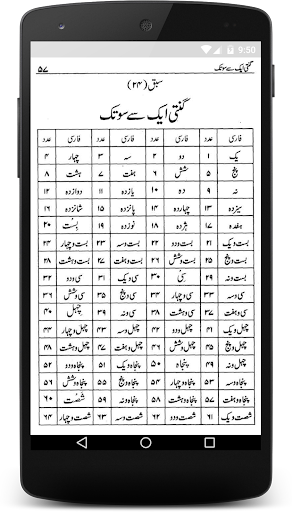 9:50
گنتی ایک سے سو تک ۵۷
سبق (۲۴)
گنتی ایک سے سو تک
فارسی عدد فارسی عدد فارسی عدد فارسی عدد
یک ۱ دو ۲ سہ ۳ چہار ۴
پنج ۵ شش ۶ ہفت ۷ ہشت ۸
نہ ۹ دہ ۱۰ یازدہ ۱۱ دوازدہ ۱۲
سیزدہ ۱۳ چہاردہ ۱۴ پانزدہ ۱۵ شانزدہ ۱۶
ہفدہ ۱۷ ہژدہ ۱۸ نوزدہ ۱۹ بست ۲۰
بست و یک ۲۱ بست و دو ۲۲ بست و سہ ۲۳ بست و چہار ۲۴
بست و پنج ۲۵ بست و شش ۲۶ بست و ہفت ۲۷ بست و ہشت ۲۸
بست و نہ ۲۹ سی ۳۰ سی و یک ۳۱ سی و دو ۳۲
سی و سہ ۳۳ سی و چہار ۳۴ سی و پنج ۳۵ سی و شش ۳۶
سی و ہفت ۳۷ سی و ہشت ۳۸ سی و نہ ۳۹ چہل ۴۰
چہل و یک ۴۱ چہل و دو ۴۲ چہل و سہ ۴۳ چہل و چہار ۴۴
چہل و پنج ۴۵ چہل و شش ۴۶ چہل و ہفت ۴۷ چہل و ہشت ۴۸
چہل و نہ ۴۹ پنجاہ ۵۰ پنجاہ و یک ۵۱ پنجاہ و دو ۵۲
پنجاہ و سہ ۵۳ پنجاہ و چہار ۵۴ پنجاہ و پنج ۵۵ پنجاہ و شش ۵۶
پنجاہ و ہفت ۵۷ پنجاہ و ہشت ۵۸ پنجاہ و نہ ۵۹ شصت ۶۰
شصت و یک ۶۱ شصت و دو ۶۲ شصت و سہ ۶۳ شصت و چہار ۶۴